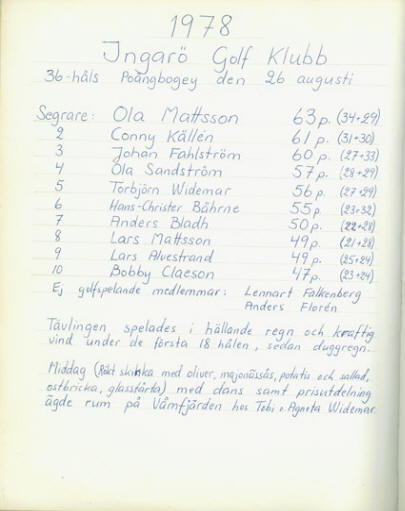 1978
Ingarö Golf Klubb
36-håls Poängbogey den 26 augusti
Segrare: Ola Mattsson 63 p. (34+29)
2 Conny Källén 61 p. (31+30)
3 Johan Fahlström 60 p. (27+33)
4 Ola Sandström 57 p. (28+29)
5 Torbjörn Widemar 56 p. (27+29)
6 Hans-Christer Båhrne 55 p. (23+32)
7 Anders Bladh 50 p. (22+28)
8 Lars Mattsson 49 p. (21+28)
9 Lars Alvestrand 49 p. (25+24)
10 Bobby Claeson 47 p. (23+24)
Ej golfspelande medlemmar: Lennart Falkenberg
Anders Florén
Tävlingen spelades i hällande regn och kraftig
vind under de första 18 hålen, sedan duggregn.
Middag (Rökt skinka med oliver, majonässås, potatis och sallad,
ostbricka, glasstårta) med dans samt prisutdelning
ägde rum på Våmfjärden hos Tobi o. Agneta Widemar.